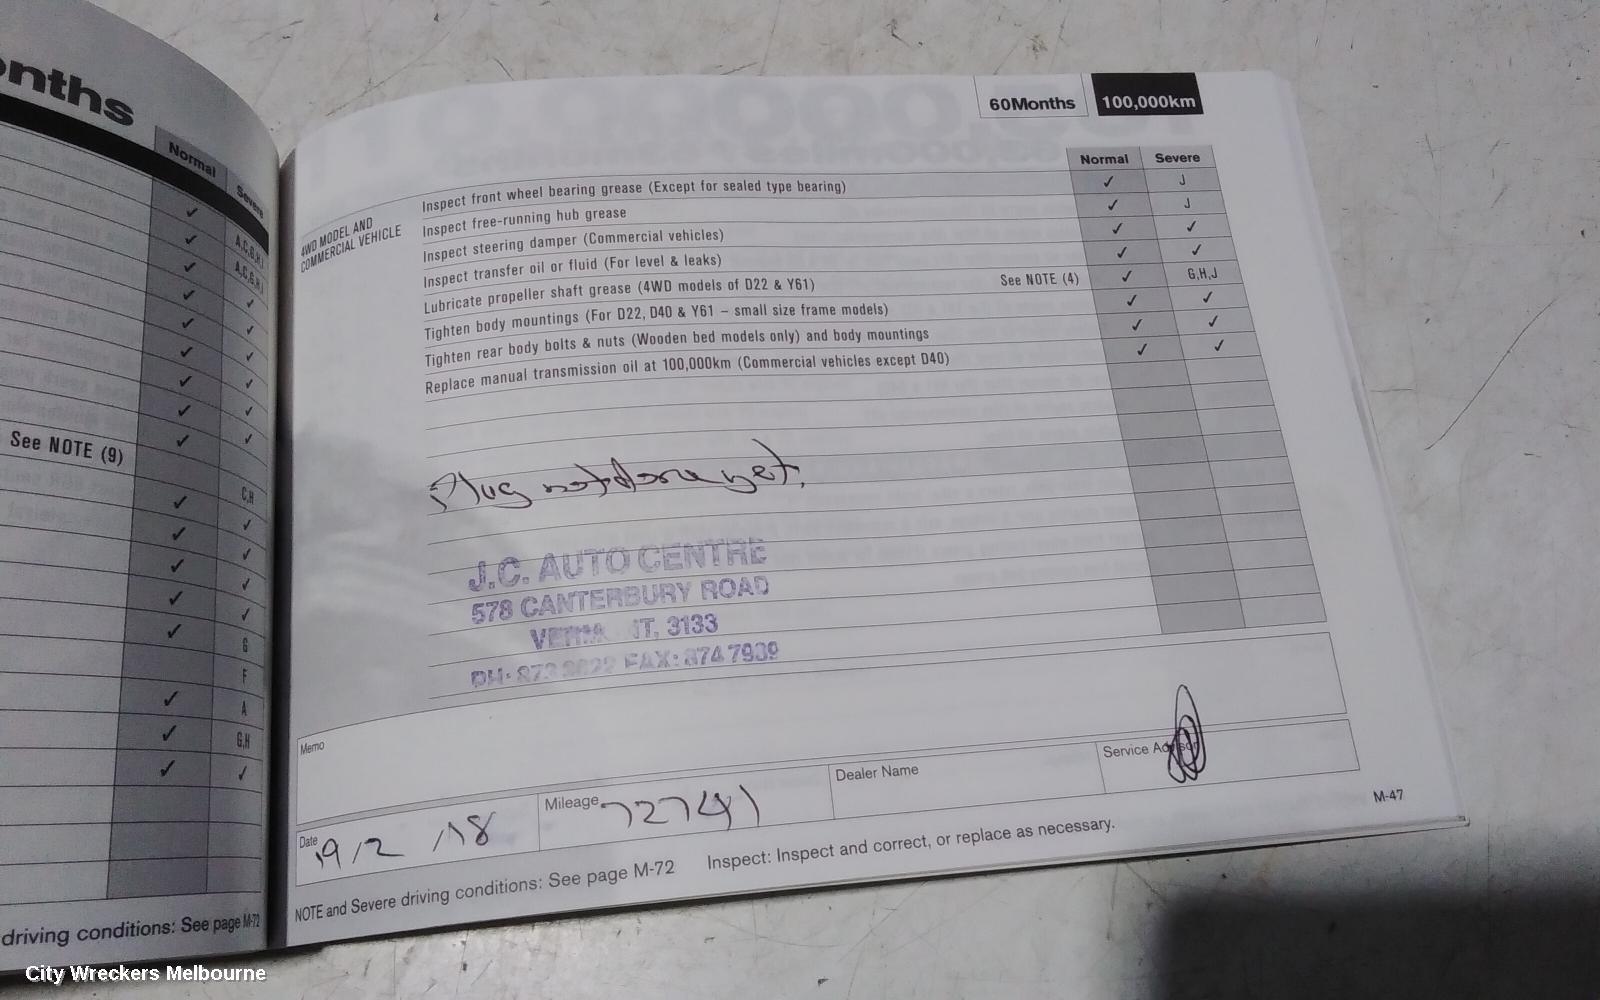 onths
Normal
Severe
A,C,G,H,J
A,C,G,H,J
See NOTE (9)
C,H
G
F
A
G,H
driving conditions: See page M-72
60Months
100,000km
Normal
Severe
4WD MODEL AND
COMMERCIAL VEHICLE
Inspect front wheel bearing grease (Except for sealed type bearing) ✓ J
Inspect free-running hub grease ✓ J
Inspect steering damper (Commercial vehicles) ✓ ✓
Inspect transfer oil or fluid (For level & leaks) ✓ ✓
Lubricate propeller shaft grease (4WD models of D22 & Y61) See NOTE (4) ✓ G,H,J
Tighten body mountings (For D22, D40 & Y61 – small size frame models) ✓ ✓
Tighten rear body bolts & nuts (Wooden bed models only) and body mountings ✓ ✓
Replace manual transmission oil at 100,000km (Commercial vehicles except D40) ✓ ✓
Plug not done yet.
J.C. AUTO CENTRE
578 CANTERBURY ROAD
3133
FAX: 874 7939
Memo
Date 19/2/18
Mileage 72741
Dealer Name
Service Advisor
M-47
NOTE and Severe driving conditions: See page M-72 Inspect: Inspect and correct, or replace as necessary.
City Wreckers Melbourne